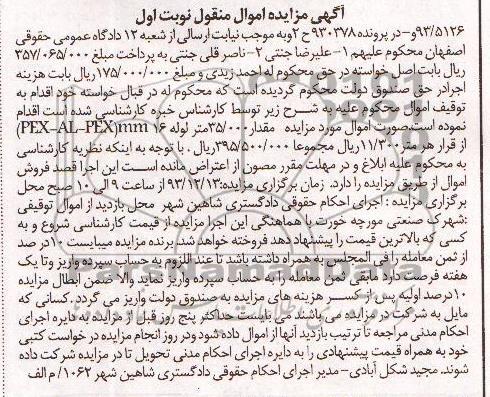 آگهی مزایده اموال منقول نوبت اول
۹۳/۵۱۲۶و-در پرونده ۹۳۰۳۷۸ح ۲وبه موجب نیابت ارسالی از شعبه ۱۲ دادگاه عمومی حقوقی
اصفهان محکوم علیهم ۱-علیرضا جنتی ۲- ناصر قلی جنتی به پرداخت مبلغ ۳۵۷/۰۶۵/۰۰۰
ریال بابت اصل خواسته در حق محکوم له احمد زیدی و مبلغ ۱۷۵/۰۰۰/۰۰۰ریال بابت هزینه
اجرادر حق صندوق دولت محکوم گردیده است که محکوم له در قبال خواسته خود اقدام به
توقیف اموال محکوم علیه به شــرح زیر توسط کارشناس خبره کارشناسی شده است اقدام
نموده است.صورت اموال مورد مزایده مقدار۳۵/۰۰۰متر لوله ۱۶ PEX-AL-PEX)mm)
از قرار هر متر۱۱/۳۰۰ریال مجموعا ۳۹۵/۵۰۰/۰۰۰ریال . با توجه به اینکه نظریه کارشناسی
به محکوم علیه ابلاغ و در مهلت مقرر مصون از اعتراض مانده اســت این اجرا قصد فروش
اموال از طریق مزایده را دارد. زمان برگزاری مزایده:۹۳/۱۲/۱۳ از ساعت ۹ الی ۱۰ صبح محل
برگزاری مزایده : اجرای احکام حقوقی دادگستری شاهین شهر محل بازدید از اموال توقیفی
:شهرک صنعتی مورچه خورت با هماهنگی این اجرا مزایده از قیمت کارشناسی شروع و به
کسی که بالاترین قیمت را پیشنهاد دهد فروخته خواهد شد. برنده مزایده میبایست ۱۰درصد
از ثمن معامله را فی المجلس به همراه داشته باشد تا عند اللزوم به حساب سپرده واریز وتا یک
هفته فرصت دارد مابقی ثمن معامله را به حساب سپرده واریز نماید والا ضمن ابطال مزایده
۱۰درصد اولیه پس از کســر هزینه های مزایده به صندوق دولت واریز می گردد .کسانی که
مایل به شرکت در مزایده می باشند می بایست حداکثر پنج روز قبل از مزایده به دایره اجرای
احکام مدنی مراجعه تا ترتیب بازدید آنها از اموال داده شود ودر روز انجام مزایده در خواست کتبی
خود به همراه قیمت پیشنهادی را به دایره اجرای احکام مدنی تحویل تا در مزایده شرکت داده
شوند. مجید شکل آبادی-مدیر اجرای احکام حقوقی دادگستری شاهین شهر ۱۰۶۲/ م الف